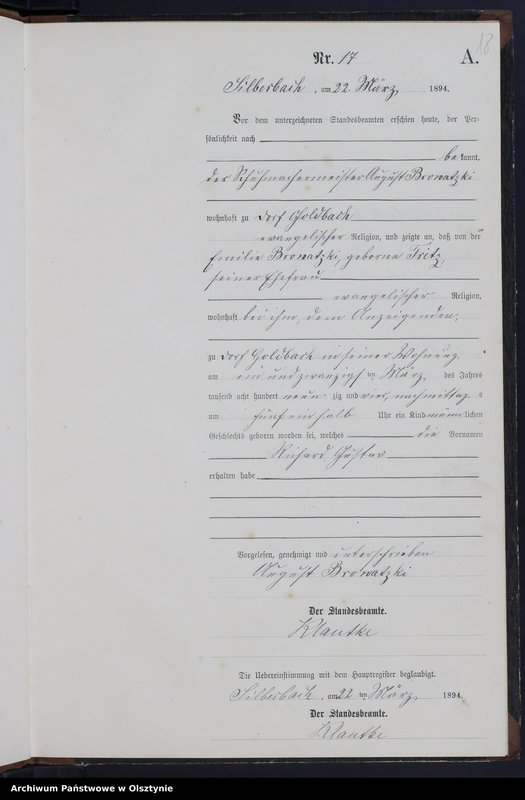 18
Nr. 17
A.
Silberbach, am 22. März 1894.
Vor dem unterzeichneten Standesbeamten erschien heute, der Per-
sönlichkeit nach
bekannt,
der Schuhmachermeister August Browatzki
wohnhaft zu Dorf Goldbach
evangelischer Religion, und zeigte an, daß von der
Emilie Browatzki, geborne Fritz,
seiner Ehefrau
evangelischer Religion,
wohnhaft bei ihm, dem Anzeigenden,
zu Dorf Goldbach in seiner Wohnung
am ein und zwanzigsten März des Jahres
tausend acht hundert neunzig und vier, nachmittags
um fünf ein halb Uhr ein Kind männlichen
Geschlechts geboren worden sei, welches die Vornamen
Richard Gustav
erhalten habe
Vorgelesen, genehmigt und unterschrieben
August Browatzki
Der Standesbeamte.
Klautke
Die Uebereinstimmung mit dem Hauptregister beglaubigt.
Silberbach, am 22 ten März 1894.
Der Standesbeamte.
Klautke
Archiwum Państwowe w Olsztynie